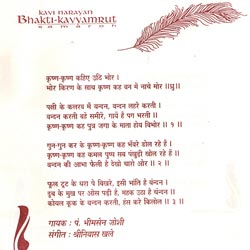 KAVI NARAYAN
BHAKTI-KAVYAMRUT
samaroh
कृष्ण-कृष्ण कहिए उठि भोर ।
भोर किरण के साथ कृष्ण कह वन में नाचे मोर ॥ध्रु॥
पक्षी के कलरव में वन्दन, वन्दन लहरें करती
वन्दन करती बहे समीरें, गायें हैं पग भरती ॥
कृष्ण-कृष्ण कह पुत्र जगा के माता होय विभोर ॥ १ ॥
गुन-गुन कर के कृष्ण-कृष्ण कह भँवरे डोल रहे हैं
कृष्ण-कृष्ण कह कमल पुष्प सब पंखुड़ी खोल रहे हैं ॥
वन्दन की आभा फैली है देखो चारो ओर ॥ २ ॥
फूल टूट के धरा पे बिखरे, इसी भांति है वन्दन ।
दूब के मुख पर ओस पड़ी है, महक उठा है चन्दन ॥
कोयल कूक के वन्दन करती, हंस करे किलोल ॥ ३ ॥
गायक : पं. भीमसेन जोशी
संगीत : श्रीनिवास खळे